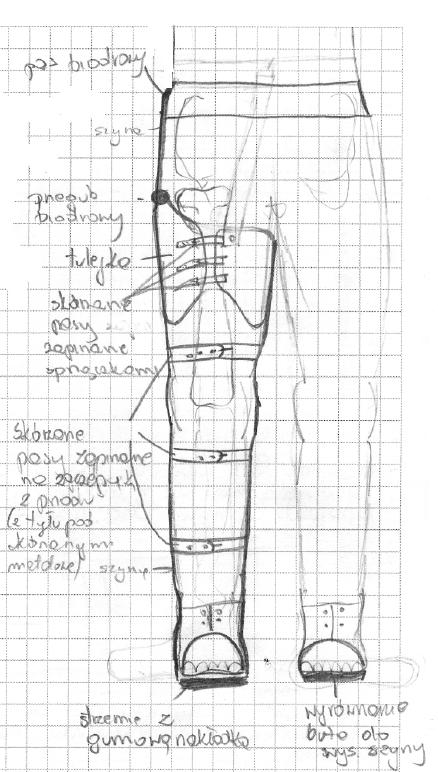 pas biodrowy
szyna
przegub
biodrowy
tulejka
skórzane
pasy
zapinane
sprzączkami
skórzane
pasy zapinane
na
z przodu
(z tyłu pod
skórzanymi
metalowe)
szyna
strzemię z
gumową nakładką
wyrównanie
buta do
wys. szyny